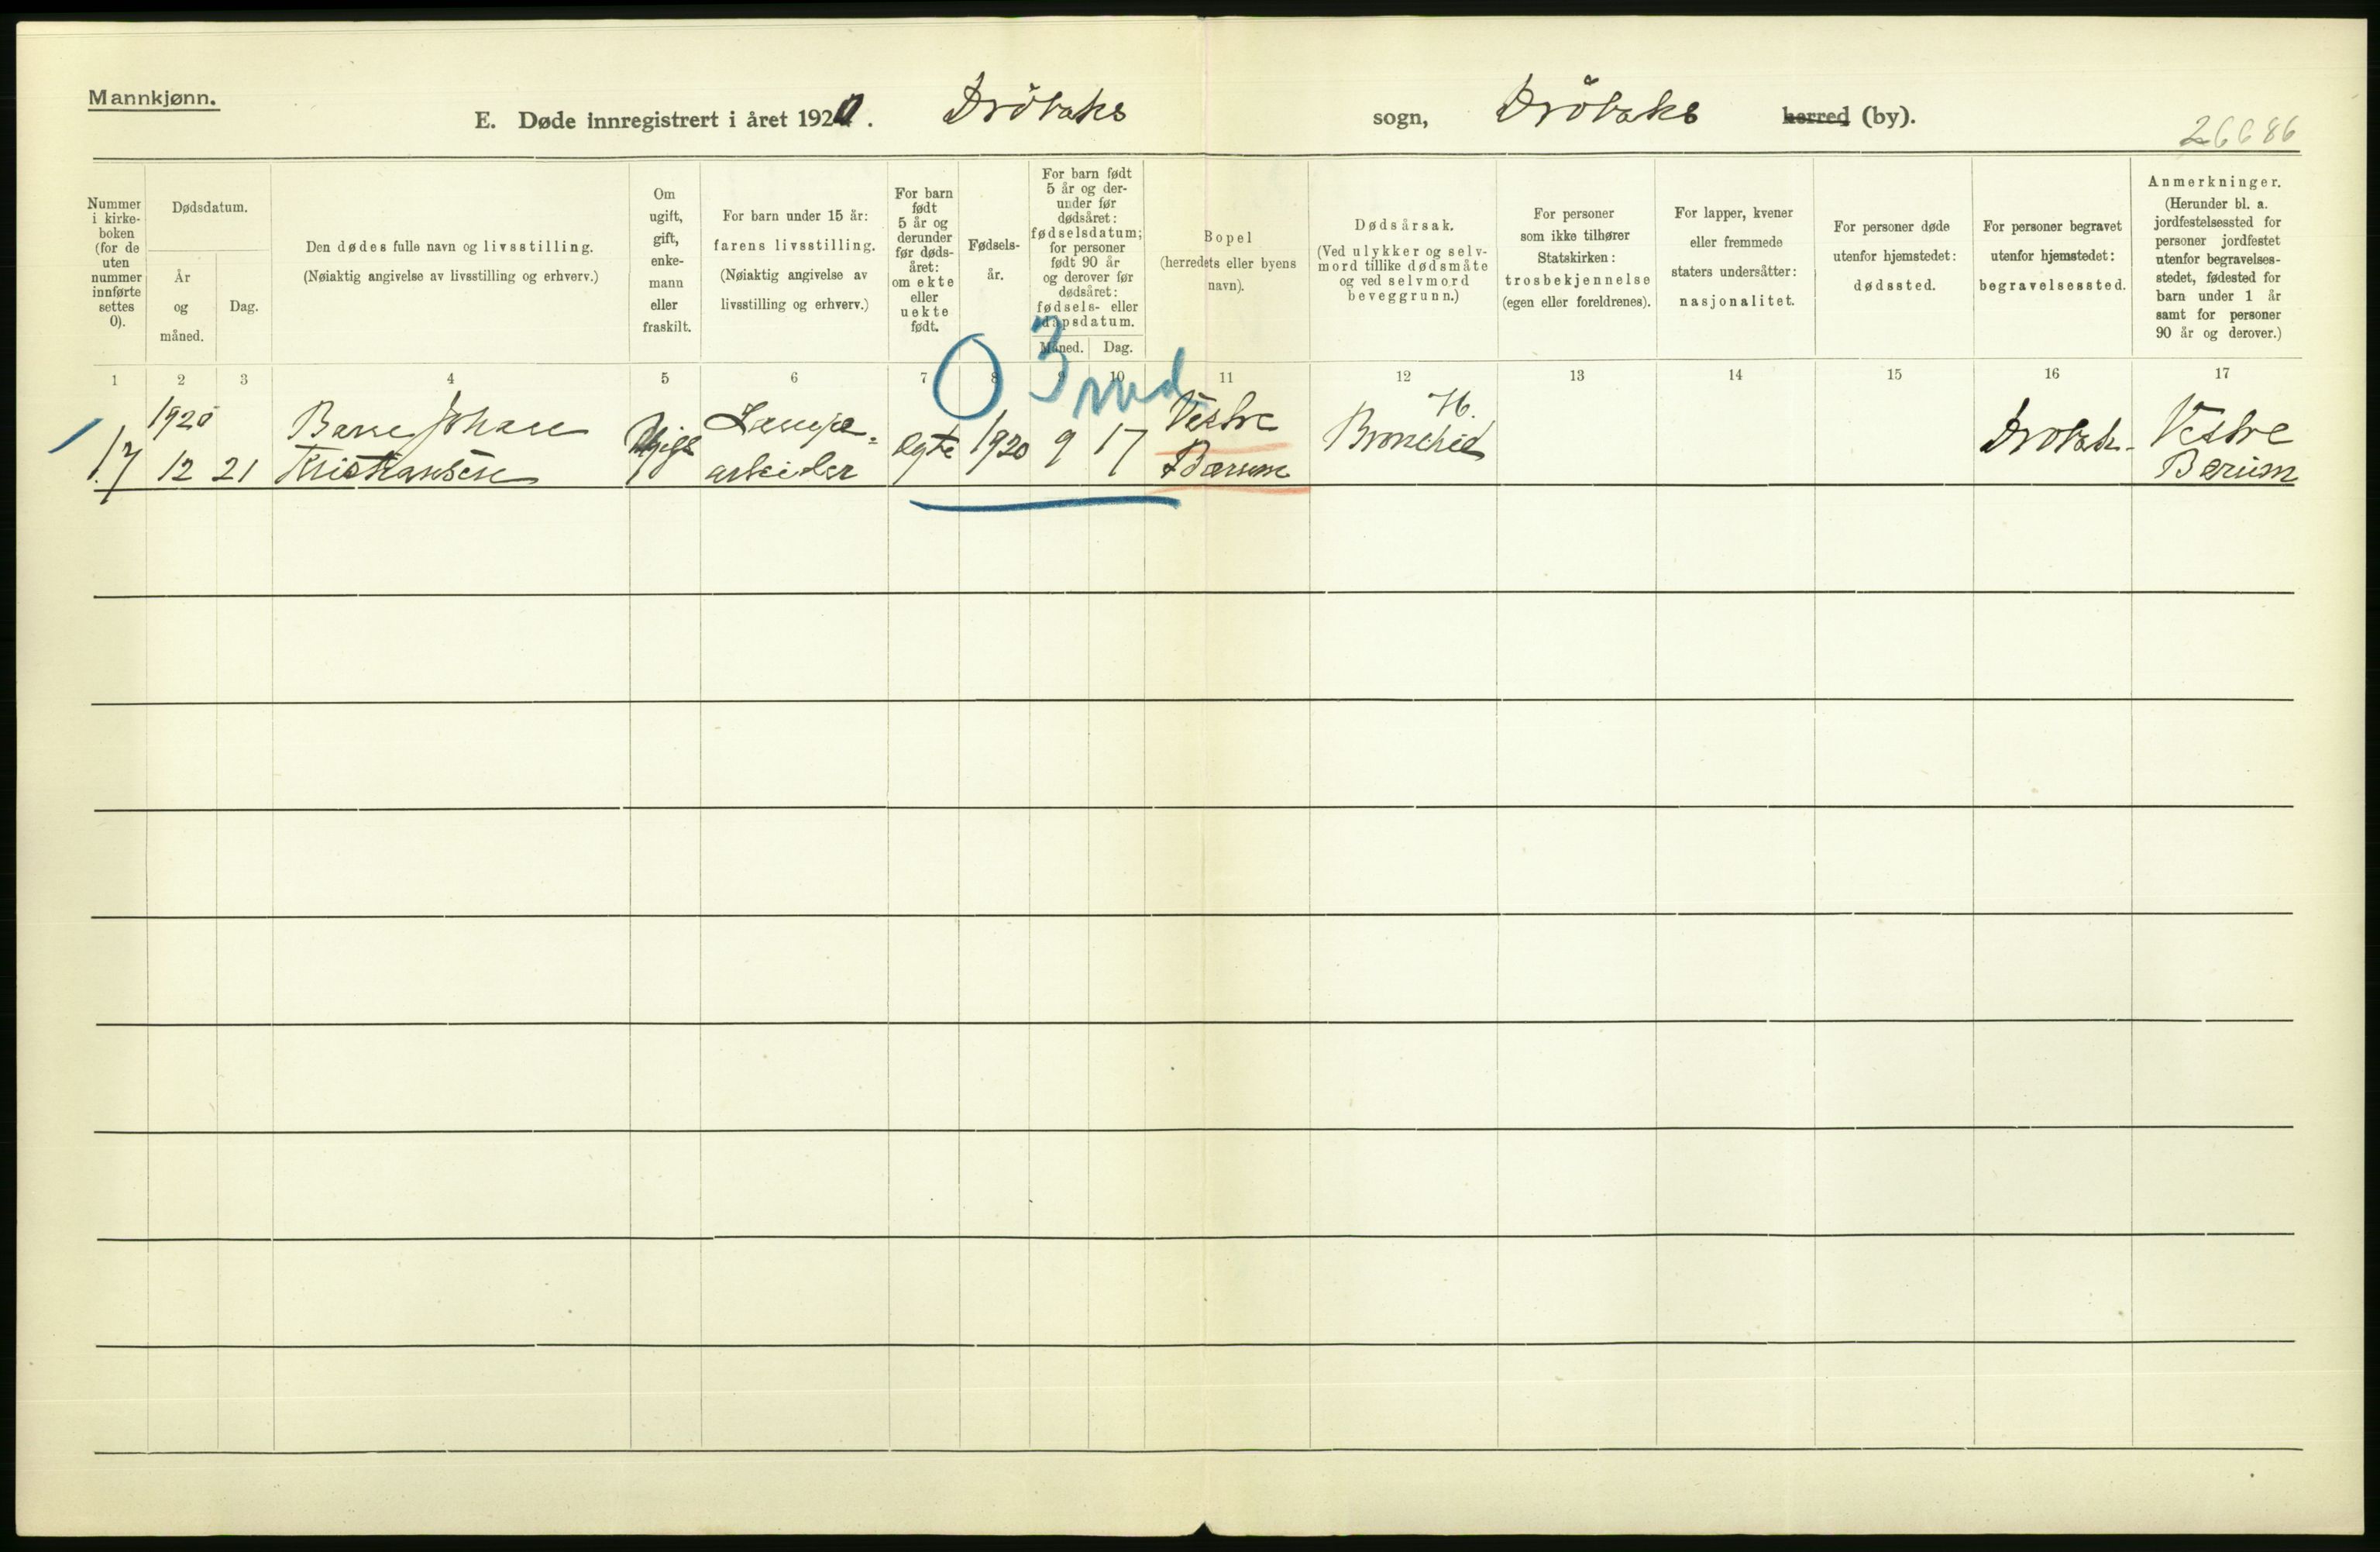 Mannkjønn.
E. Døde innregistrert i året 1920. Dröbaks sogn, Dröbaks herred (by).
26686
Nummer
i kirke-
boken
(for de
uten
nummer
innførte
settes
0).
Dødsdatum.
År
og
måned.
Dag.
Den dødes fulle navn og livsstilling.
(Nøiaktig angivelse av livsstilling og erhverv.)
Om
ugift,
gift,
enke-
mann
eller
fraskilt.
For barn under 15 år:
farens livsstilling.
(Nøiaktig angivelse av
livsstilling og erhverv.)
For barn
født
5 år og
derunder
før døds-
året:
om ekte
eller
uekte
født.
Fødsels-
år.
For barn født
5 år og der-
under før
dødsåret:
fødselsdatum;
for personer
født 90 år
og derover før
dødsåret:
fødsels- eller
dåpsdatum.
Måned. Dag.
Bopel
(herredets eller byens
navn).
Dødsårsak.
(Ved ulykker og selv-
mord tillike dødsmåte
og ved selvmord
beveggrunn.)
For personer
som ikke tilhører
Statskirken:
trosbekjennelse
(egen eller foreldrenes).
For lapper, kvener
eller fremmede
staters undersåtter:
nasjonalitet.
For personer døde
utenfor hjemstedet:
dødssted.
For personer begravet
utenfor hjemstedet:
begravelsessted.
Anmerkninger.
(Herunder bl. a.
jordfestelsessted for
personer jordfestet
utenfor begravelses-
stedet, fødested for
barn under 1 år
samt for personer
90 år og derover.)
1 2 3 4 5 6 7 8 9 10 11 12 13 14 15 16 17
0 3 md
17
1920
12 21
Johan
Kristiansen
Ugift
arbeider
egte
1920 9 17
Vestre
Bærum
H.
Bronchid
Drøbak.
Vestre
Bærum